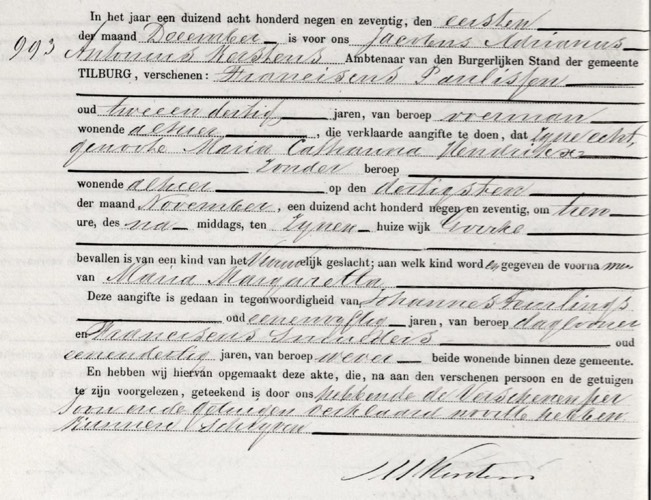 In het jaar een duizend acht honderd negen en zeventig, den eersten
der maand December is voor ons Jacobus Adrianus
993 Antonius Kerstens Ambtenaar van den Burgerlijken Stand der gemeente
TILBURG, verschenen: Franciscus Paulissen
oud twee en dertig jaren, van beroep voerman
wonende alhier, die verklaarde aangifte te doen, dat Zyne echt,
genoote Maria Catharina Hendriks
Zonder beroep
wonende alhier op den dertigsten
der maand November, een duizend acht honderd negen en zeventig, om tien
ure, des na middags, ten Zynen huize wijk Goirke
bevallen is van een kind van het Vrouwelijk geslacht; aan welk kind word by gegeven de voorna men
van Maria Margaretha
Deze aangifte is gedaan in tegenwoordigheid van Johannes Teurlings
oud eenenvyftig jaren, van beroep daglooner
en Franciscus Smulders oud
eenendertig jaren, van beroep wever beide wonende binnen deze gemeente.
En hebben wij hiervan opgemaakt deze akte, die, na aan den verschenen persoon en de getuigen
te zijn voorgelezen, geteekend is door ons hebbende de Verschenen per
soon en de getuigen verklaard nooit te hebben
kunnen Schryven
Kerstens